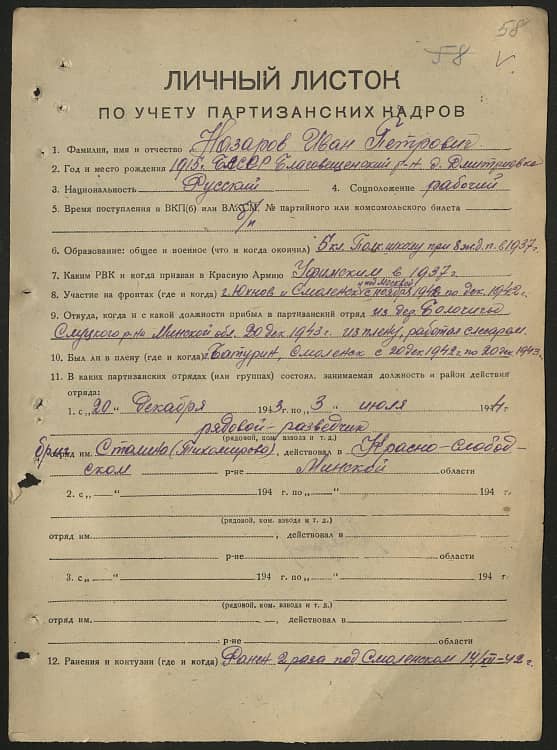 58
58
V
ЛИЧНЫЙ ЛИСТОК
ПО УЧЕТУ ПАРТИЗАНСКИХ КАДРОВ
1. Фамилия, имя и отчество Назаров Иван Петрович
2. Год и место рождения 1915г. БАССР Благовещенский р-н д. Дмитриевка
3. Национальность Русский 4. Соцположение рабочий
5. Время поступления в ВКП(б) или ВЛКСМ, № партийного или комсомольского билета
б/п
6. Образование: общее и военное (что и когда окончил) 5кл. Полк. школу при 8 ж.д.п. в 1937г.
7. Каким РВК и когда призван в Красную Армию Уфимским в 1937г.
8. Участие на фронтах (где и когда) г. Юхнов и Смоленск (под Москвой) с ноября 1942 по дек. 1942г.
9. Откуда, когда и с какой должности прибыл в партизанский отряд из дер.
Слуцкого р-на Минской обл. 20 дек 1943г. из плену, работал слесарем.
10. Был ли в плену (где и когда) г. Батурин, Смоленск с 20 дек 1942г. по 20 дек 1943.
11. В каких партизанских отрядах (или группах) состоял, занимаемая должность и район действия
отряда:
1. с „20“ декабря 1943 г. по „3“ июля 1944 г.
рядовой-разведчик
(рядовой, ком. взвода и т. д.)
бриг. отряд им. Сталина (Тихомирова), действовал в Красно-Слобод-
ском р-не Минской области
2. с „ “ 194 г. по „ “ 194 г.
(рядовой, ком. взвода и т. д.)
отряд им. , действовал в
р-не области
3. с „ “ 194 г. по „ “ 194 г.
(рядовой, ком. взвода и т. д.)
отряд им. , действовал в
р-не области
12. Ранения и контузии (где и когда) Ранен 2 раза под Смоленском 14/XII-42 г.